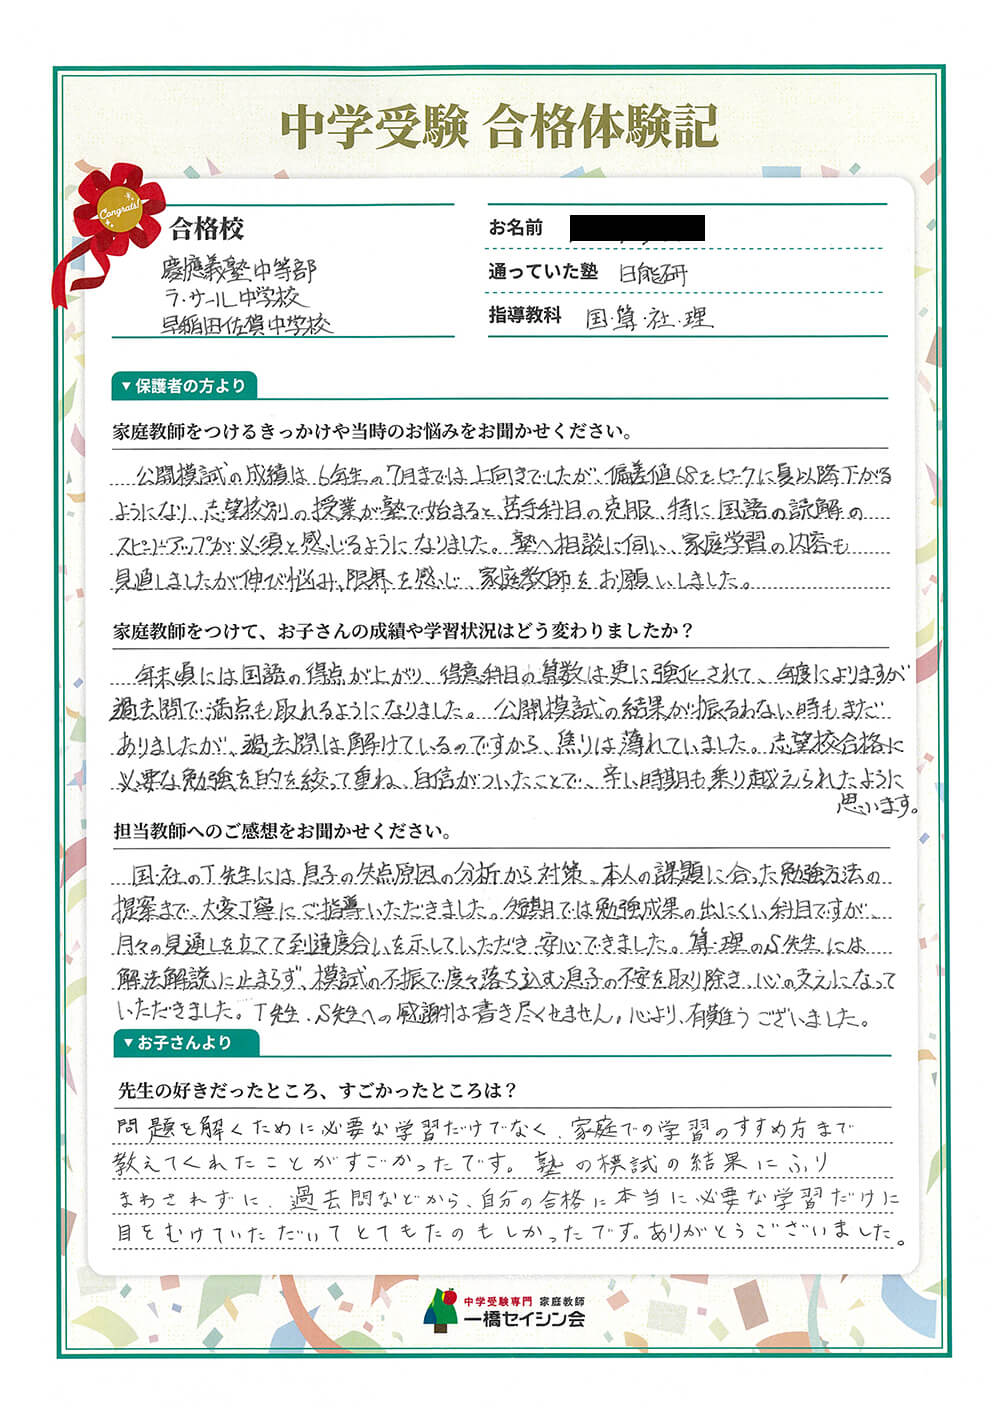 中学受験 合格体験記
Congrats!
合格校
慶應義塾中等部
ラ・サール中学校
早稲田佐賀中学校
お名前
通っていた塾 日能研
指導教科 国・算・社・理
▼保護者の方より
家庭教師をつけるきっかけや当時のお悩みをお聞かせください。
公開模試の成績は6年生の7月までは上向きでしたが、偏差値68をピークに夏以降下がる
ようになり、志望校別の授業が塾で始まると、苦手科目の克服、特に国語の読解の
スピードアップが必須と感じるようになりました。塾へ相談に伺い、家庭学習の内容も
見直しましたが伸び悩み、限界を感じ、家庭教師をお願いしました。
家庭教師をつけて、お子さんの成績や学習状況はどう変わりましたか？
年末頃には国語の得点が上がり、得意科目の算数は更に強化されて、年度によりますが
過去問で満点も取れるようになりました。公開模試の結果が振るわない時もまだ
ありましたが、過去問は解けているのですから、焦りは薄れていました。志望校合格に
必要な勉強を的を絞って重ね、自信がついたことで、辛い時期も乗り越えられたように
思います。
担当教師へのご感想をお聞かせください。
国・社のT先生には息子の失点原因の分析から対策、本人の課題に合った勉強方法の
提案まで、大変丁寧にご指導いただきました。短期では勉強成果の出にくい科目ですが、
月々の見通しを立てて到達度合いを示していただき、安心できました。算・理のS先生には
解法解説に止まらず、模試の不振で度々落ち込む息子の不安を取り除き、心の支えになって
いただきました。T先生、S先生への感謝は書き尽くせません。心より、有難うございました。
▼お子さんより
先生の好きだったところ、すごかったところは？
問題を解くために必要な学習だけでなく、家庭での学習のすすめ方まで
教えてくれたことがすごかったです。塾の模試の結果にふり
まわされずに、過去問などから、自分の合格に本当に必要な学習だけに
目をむけていただいてとてもたのもしかったです。ありがとうございました。
中学受験専門 家庭教師
一橋セイシン会